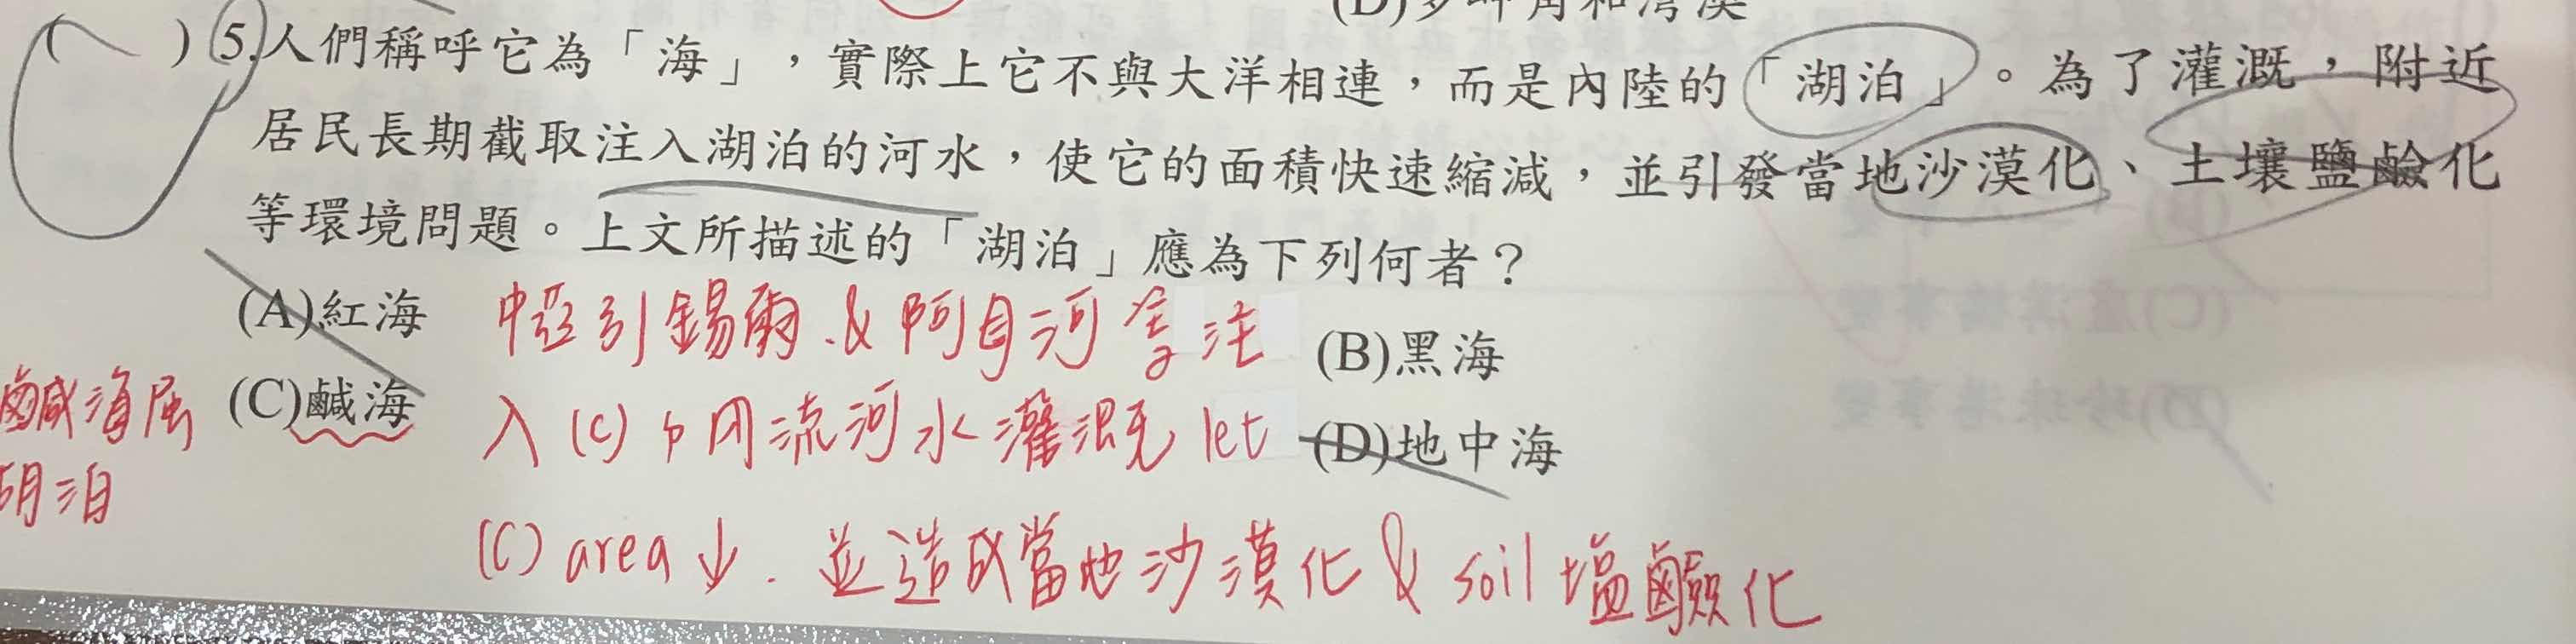 (D)多岬角和灣澳
( )5.人們稱呼它為「海」，實際上它不與大洋相連，而是內陸的「湖泊」。為了灌溉，附近
居民長期截取注入湖泊的河水，使它的面積快速縮減，並引發當地沙漠化、土壤鹽鹼化
等環境問題。上文所描述的「湖泊」應為下列何者？
(A)紅海
中亞引錫爾&阿母河等注
(B)黑海
鹹海屬
(C)鹹海
入(C)內流河水灌溉 let
(D)地中海
湖泊
(C) area↓. 並造成當地沙漠化 & soil 塩鹼化